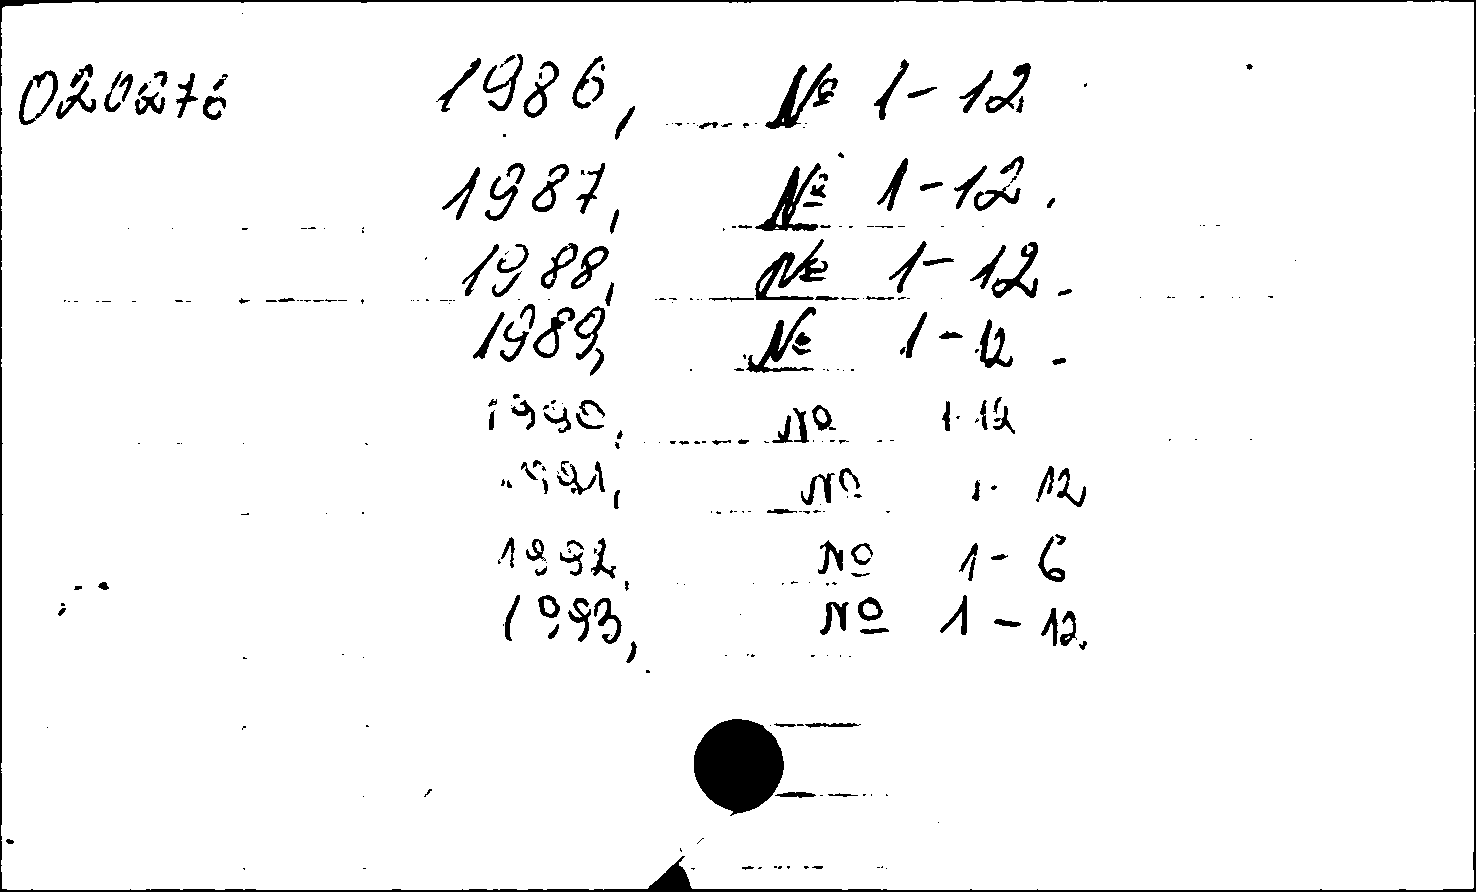 020276 1986, № 1-12
1987, № 1-12.
1988, № 1-12.
1989, № 1-12.
1990, № 1-12
1991, № 1-12
1992, № 1-6
1993, № 1-12.